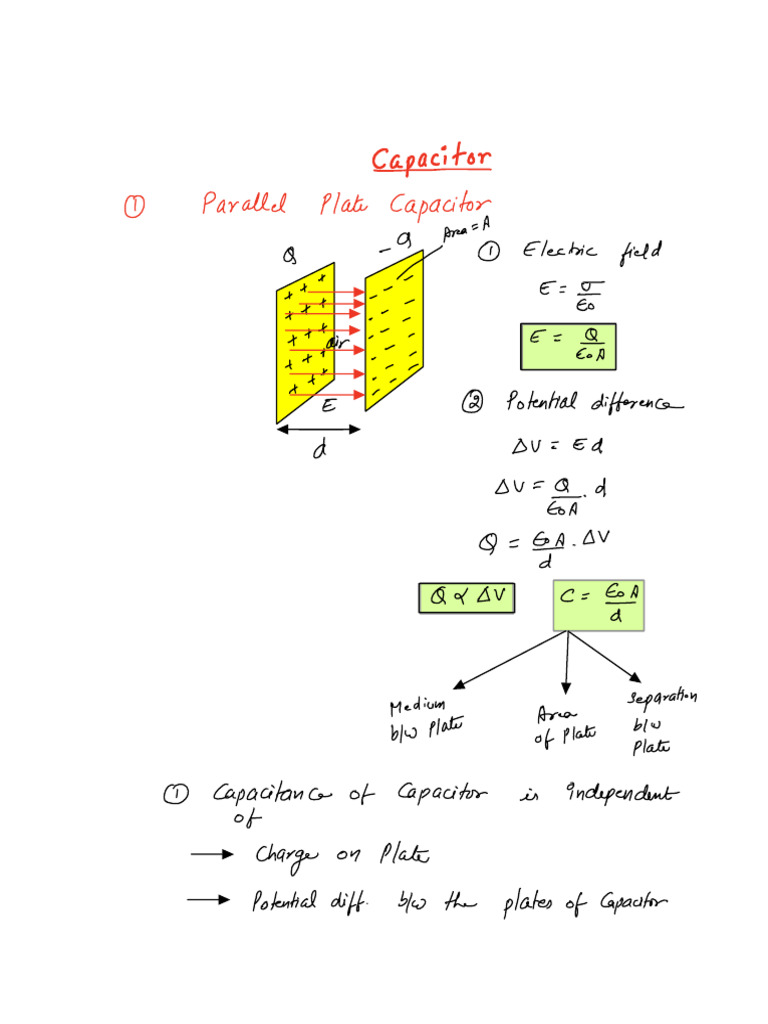 Capacitor
① Parallel Plate Capacitor
Q
- Q
Area = A
+ + + + + + + + + + + + + + +
- - - - - - - - - - - - - - - - - -
air
E
d
① Electric field
E = σ/ε₀
E = Q/ε₀A
② Potential difference
ΔV = Ed
ΔV = Q/ε₀A . d
Q = ε₀A/d . ΔV
Q ∝ ΔV
C = ε₀A/d
Medium
b/w Plate
Area
of Plate
Separation
b/w
Plate
① Capacitance of Capacitor is Independent
of
→ Charge on Plate
→ Potential diff. b/w the plates of Capacitor